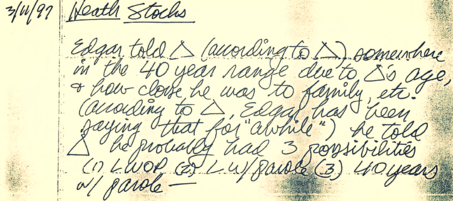 3/11/97 Heath Stocks
Edgar told Δ (according to Δ) somewhere
in the 40 year range due to Δ's age,
& how close he was to family, etc.
(according to Δ, Edgar has been
saying that for "awhile") he told
Δ he probably had 3 possibilities
(1) LWOP (2) L w/ parole (3) 40 years
w/ parole —